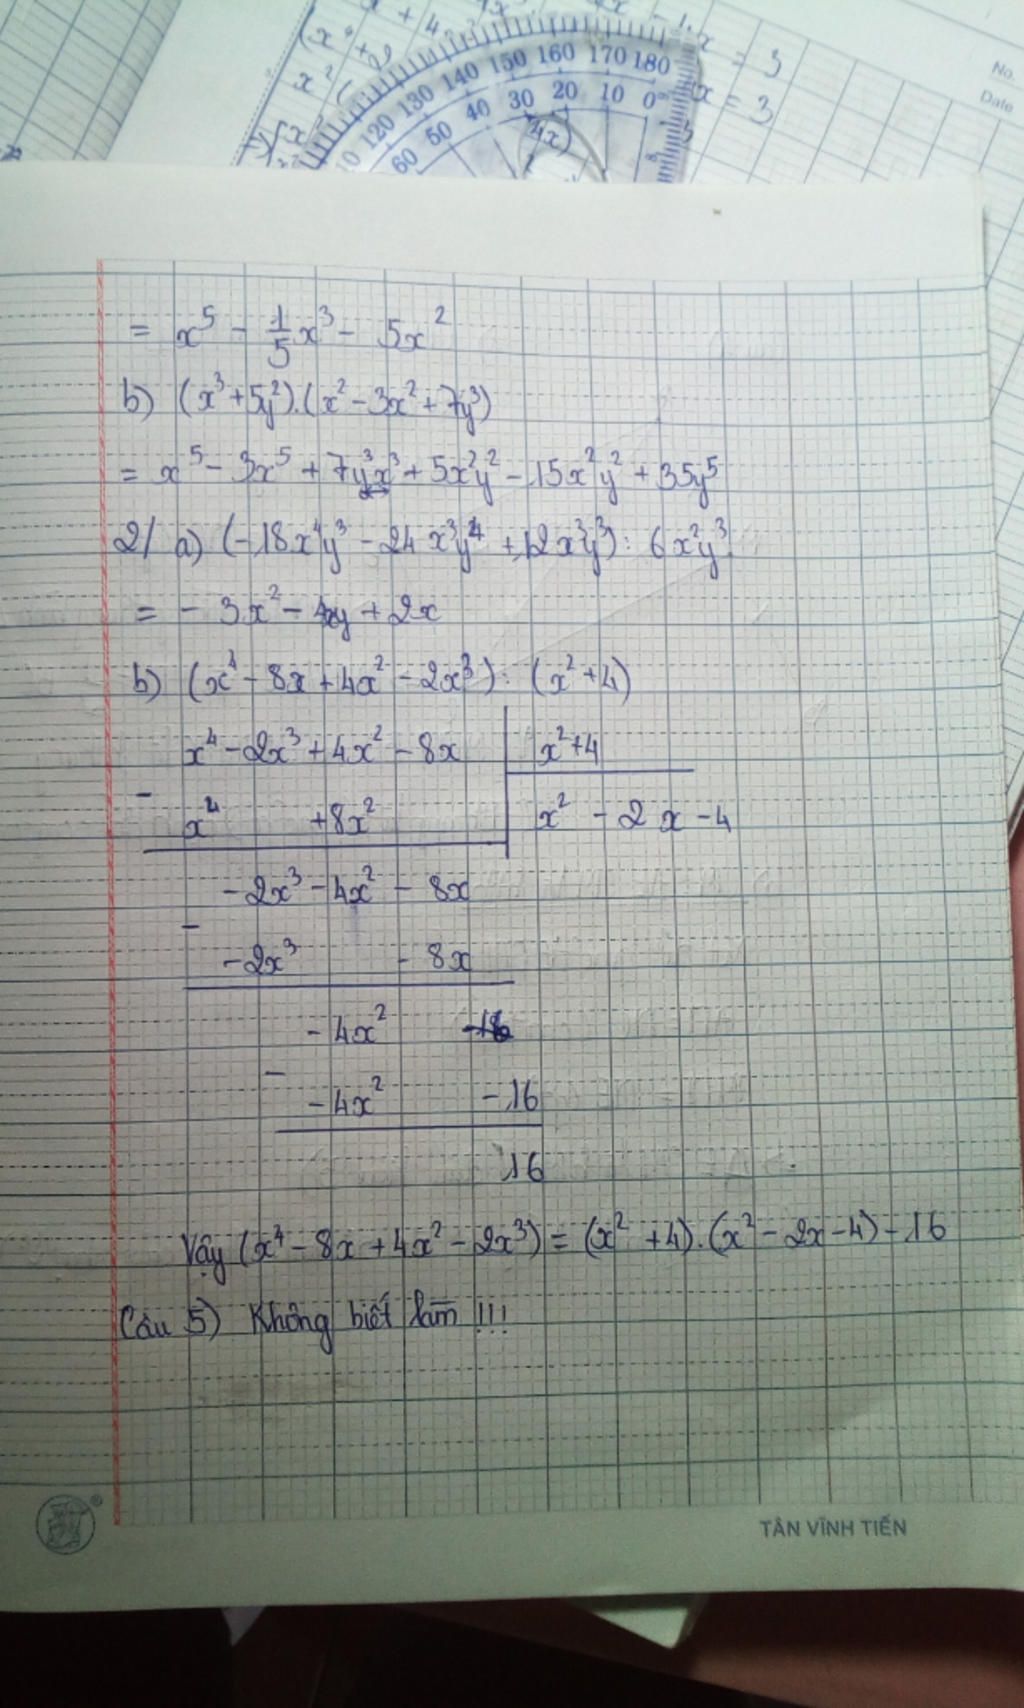 160 170 180
150
140
130
120
30 20 10 0
40
50
60
x = 3
x = 3
No.
Date
= x⁵ - 1/5 x³ - 5x²
b) (x³ + 5y²).(x² - 3x² + 7y³)
= x⁵ - 3x⁵ + 7y³x³ + 5x²y² - 15x²y² + 35y⁵
2/ a) (-18x⁴y³ - 24x³y⁴ + 12x³y³) : 6x²y³
= - 3x² - 4xy + 2x
b) (x⁴ - 8x + 4x² - 2x³) : (x² + 4)
x⁴ - 2x³ + 4x² - 8x x² + 4
-
x⁴ + 8x² x² - 2x - 4
-2x³ - 4x² - 8x
-
-2x³ - 8x
- 4x²
-
- 4x² - 16
16
Vậy (x⁴ - 8x + 4x² - 2x³) = (x² + 4).(x² - 2x - 4) - 16
Câu 5) Không biết làm !!!
TÂN VĨNH TIẾN